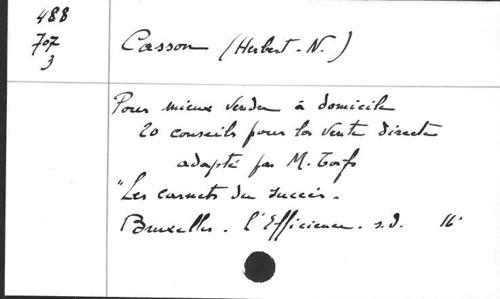 488
707
3
Casson (Herbert-N.)
Pour mieux vendre à domicile
20 conseils pour la vente directe
adapté par M. Torfs
"Les carnets du succès.
Bruxelles. L'Efficience. s.d. 16°